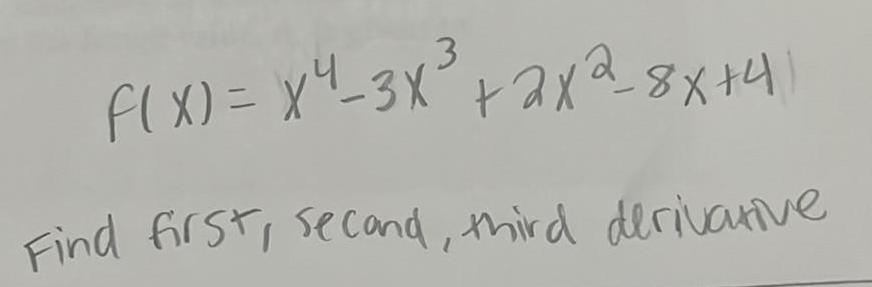 f(x) = x⁴-3x³ + 2x²- 8x+4
Find first, second, third derivative